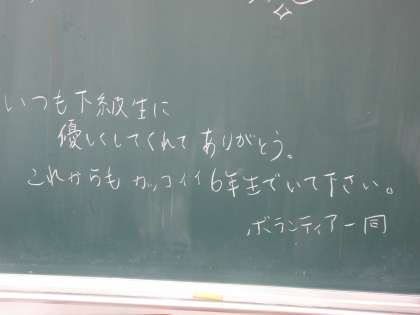 いつも下級生に
優しくしてくれてありがとう。
これからもカッコイイ6年生でいて下さい。
ボランティア一同